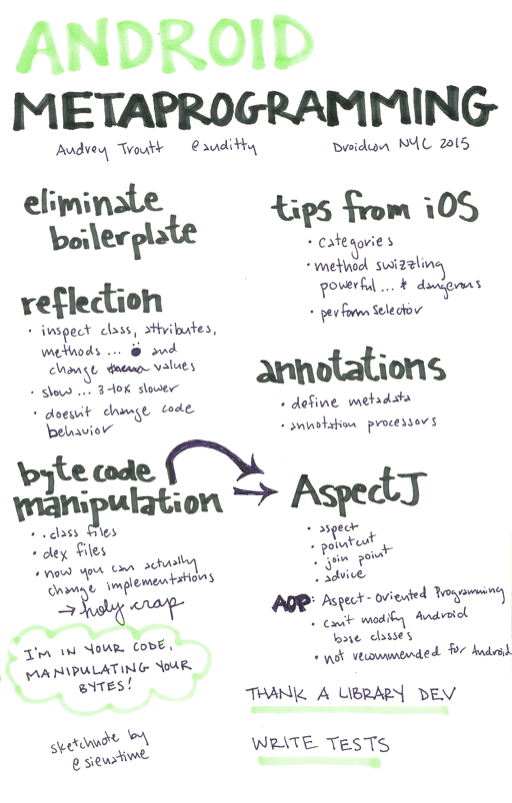 ANDROID
METAPROGRAMMING
Audrey Troutt @auditty Droidcon NYC 2015
eliminate
boilerplate
reflection
• inspect class, attributes,
methods ... and
change values
• slow ... 3-10x slower
• doesn't change code
behavior
byte code
manipulation
• .class files
• dex files
• now you can actually
change implementations
→ holy crap
I'M IN YOUR CODE,
MANIPULATING YOUR
BYTES!
sketchnote by
@sienatime
tips from iOS
• categories
• method swizzling
powerful ... & dangerous
• perform Selector
annotations
• define metadata
• annotation processors
AspectJ
• aspect
• pointcut
• join point
• advice
AOP: Aspect-Oriented Programming
• can't modify Android
base classes
• not recommended for Android
THANK A LIBRARY DEV
WRITE TESTS